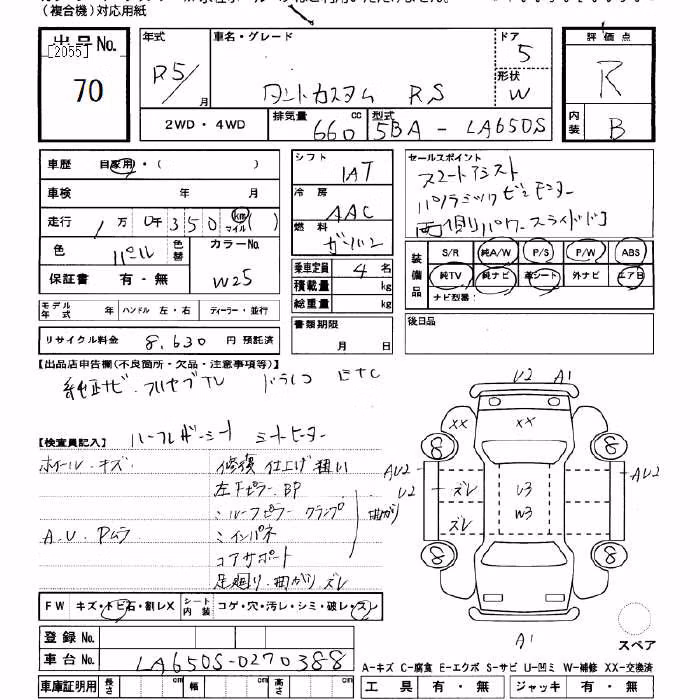 (複合機)対応用紙
出品No. [2055] 70
年式 R5/ 月
車名・グレード タントカスタム RS
ドア 5
形状 W
2WD・4WD
排気量 660 cc
型式 5BA - LA650S
評価点 R
内装 B
車歴 自家用・( )
車検 年 月
走行 1万 350 km マイル ( )
色 パール 色替
カラーNo. W25
保証書 有・無
モデル年式 年 ハンドル 左・右 ディーラー・並行
リサイクル料金 8,630 円 預託済
シフト IAT
冷房 AAC
燃料 ガソリン
乗車定員 4 名
積載量 kg
総重量 kg
書類期限 月 日
セールスポイント
スマートアシスト
パノラミックビューモニター
両側パワースライドド
装備品 S/R 純A/W P/S P/W ABS
純TV 純ナビ 革シート 外ナビ エアB
ナビ型番:
後日品
【出品店申告欄(不良箇所・欠品・注意事項等)】
純正ナビ・フルセグTV ドラレコ ETC
【検査員記入】 ハーフレザーシート シートヒーター
ホイール・キズ 修復 仕上げ粗い
左Fピラー BP
〃 ルーフピラー クランプ 曲がり
A.U. Pムラ 〃 インパネ
コアサポート
足廻り・曲がり ズレ
FW キズ・トビ石・割レX シート内装 コゲ・穴・汚レ・シミ・破レ・スレ
登録No.
車台No. LA650S-0270388
車庫証明用 長さ cm 幅 cm 高さ cm
U2 A1
XX XX
8 8
AU2 U2 ズレ U3 AU2
ズレ W3
8 8
A1
スペア
A-キズ C-腐食 E-エクボ S-サビ U-凹ミ W-補修 XX-交換済
工具 有・無 ジャッキ 有・無